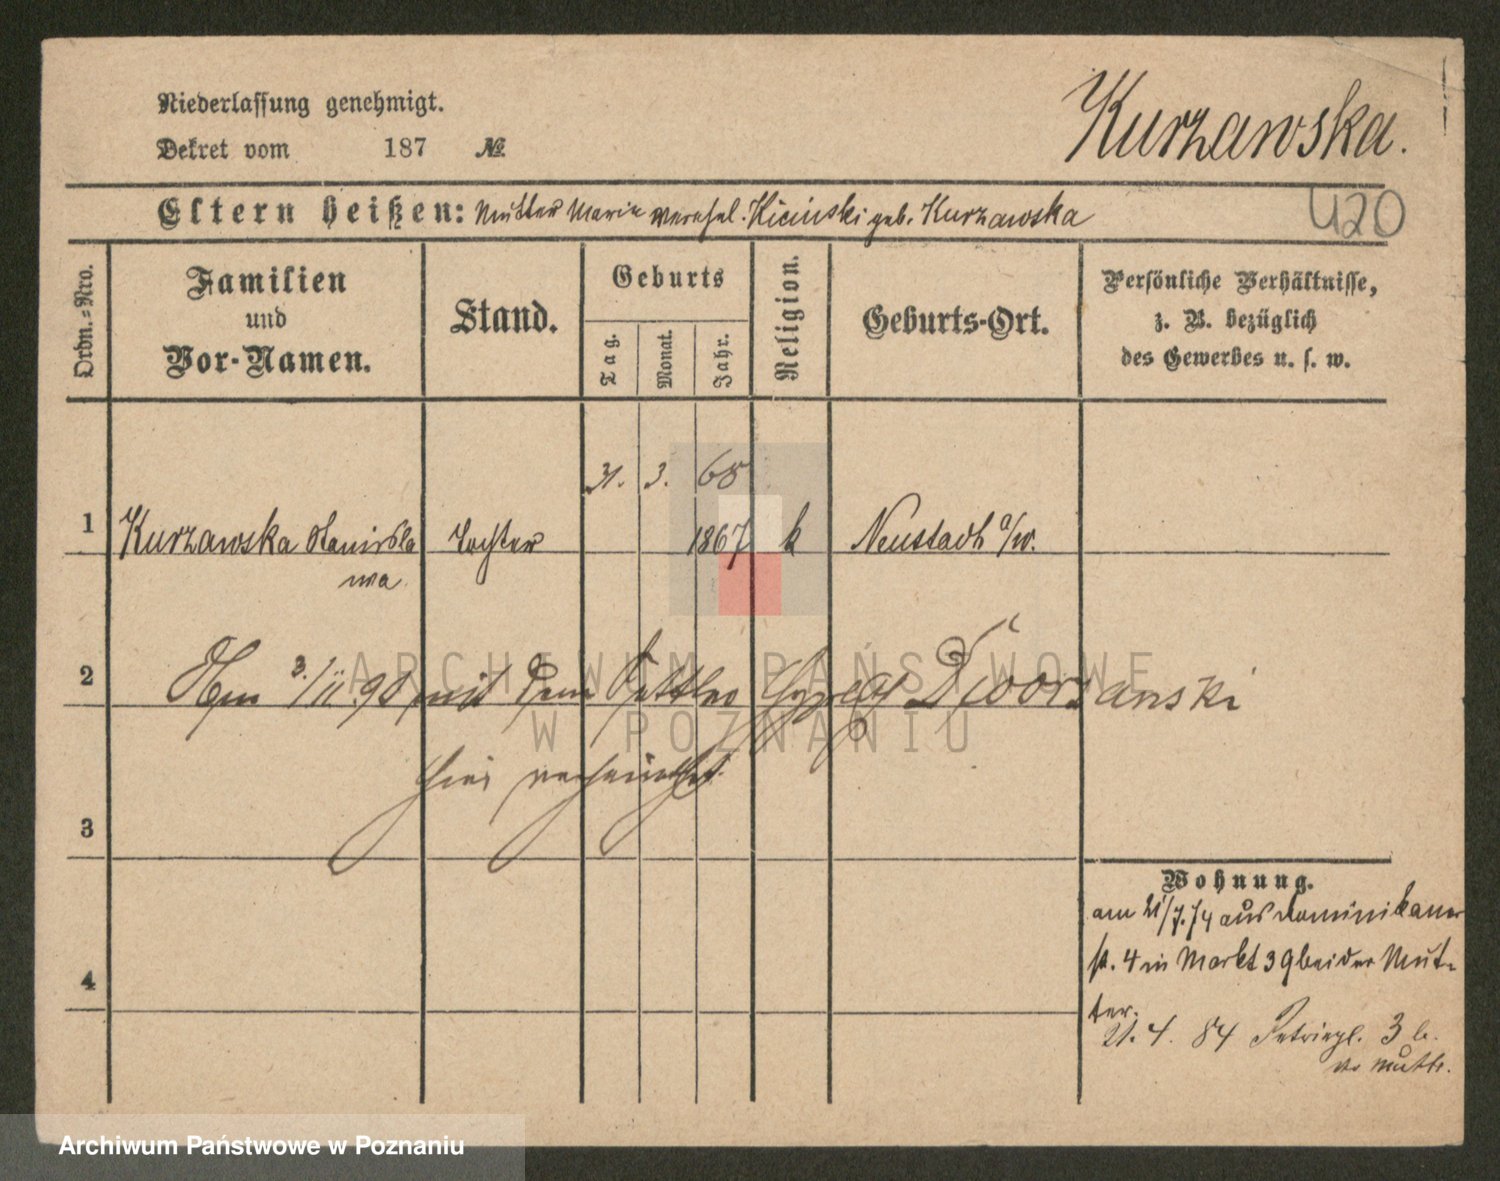 Niederlassung genehmigt.
Dekret vom 187 №
Kurzawska.
Eltern heißen: Mutter Marie verehel. Kicinski geb. Kurzawska
420
Ordn.-Nro.
Familien
und
Vor-Namen.
Stand.
Geburts
Tag. Monat. Jahr.
Religion.
Geburts-Ort.
Persönliche Verhältnisse,
z. B. bezüglich
des Gewerbes u. s. w.
31. 3. 68
1 Kurzawska Stanisla Tochter 1867 k Neustadt a/W.
wa
2 3/11. 98 mit dem Sattler Dworzanski
hier verheirathet.
3
4
Wohnung.
am 21/7.74 aus Dominikaner
st. 4 in Markt 39 bei der Mut-
ter.
21. 4. 84 Petripl. 3 b.
Mutter.
ARCHIWUM PAŃSTWOWE
W POZNANIU
Archiwum Państwowe w Poznaniu